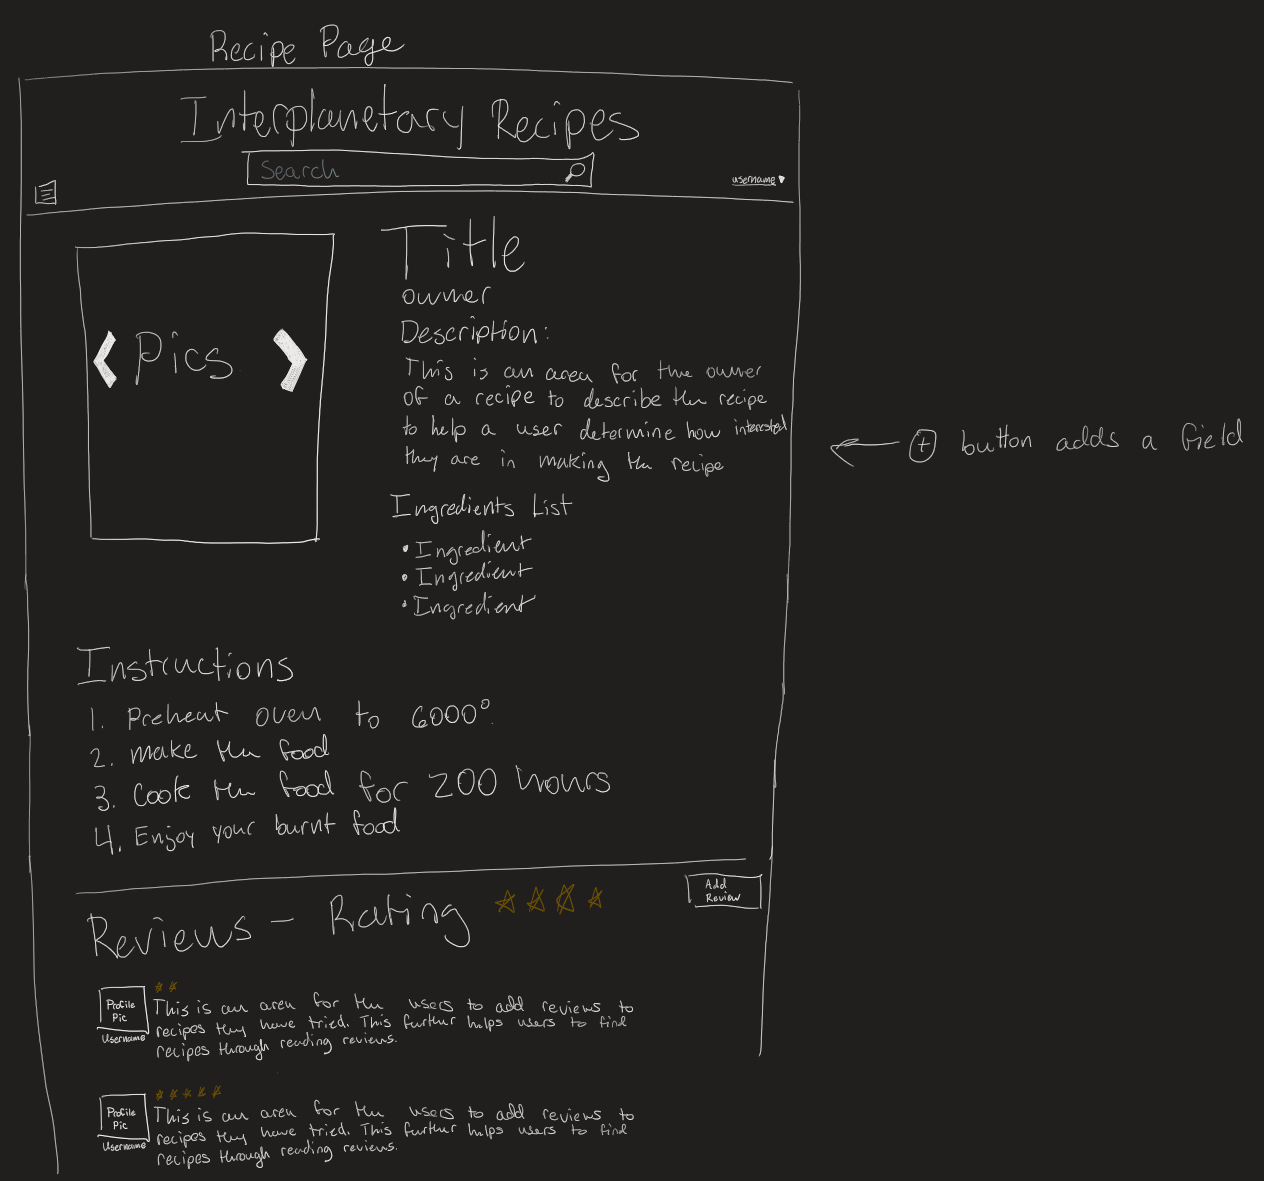 Recipe Page
Interplanetary Recipes
Search
username
Title
owner
Description:
This is an area for the owner
of a recipe to describe the recipe
to help a user determine how interested
they are in making the recipe
+ button adds a field
Pics
Ingredients List
• Ingredient
• Ingredient
• Ingredient
Instructions
1. Preheat oven to 6000°
2. make the food
3. Cook the food for 200 hours
4. Enjoy your burnt food
Reviews - Rating
Add
Review
Profile
Pic
Username
This is an area for the users to add reviews to
recipes they have tried. This further helps users to find
recipes through reading reviews.
Profile
Pic
Username
This is an area for the users to add reviews to
recipes they have tried. This further helps users to find
recipes through reading reviews.